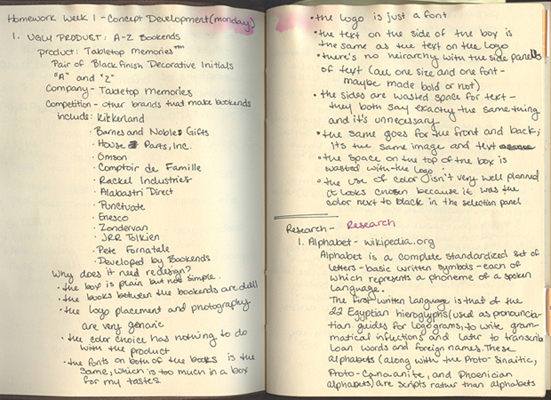 Homework Week 1 - Concept Development (monday)
1. UGLY PRODUCT: A-Z Bookends
product: Tabletop Memories™
Pair of Black Finish Decorative Initials
"A" and "Z"
Company - Tabletop Memories
Competition - other brands that make bookends
include: Kirkland
· Barnes and Nobles Gifts
· House Parts, Inc.
· Omson
· Comptoir de Famille
· Rackel Industries
· Alabastri Direct
· Punctuate
· Enesco
· Zondervan
· JRR Tolkien
· Pete Fornatale
· Developed by Bookends
Why does it need redesign?
· the box is plain but not simple.
· the books between the bookends are dull
· the logo placement and photography
are very generic
· the color choice has nothing to do
with the product
· the fonts on both of the books is the
same, which is too much in a box
for my tastes
· the logo is just a font
· the text on the side of the box is
the same as the text on the logo
· there's no heirarchy with the side panels
of text (all one size and one font-
maybe made bold or not)
· the sides are wasted space for text -
they both say exactly the same thing
and it's unnecessary
· the same goes for the front and back;
its the same image and text
· the space on the top of the box is
wasted with the logo
· the use of color isn't very well planned
it looks chosen because it was the
color next to black in the selection panel
Research - Research
1. Alphabet - wikipedia.org
Alphabet is a complete standardized set of
letters - basic written symbols - each of
which represents a phoneme of a spoken
language.
The first written language is that of the
22 Egyptian hieroglyphs (used as pronuncia-
tion guides for logograms, to write gram-
matical inflections and later to transcribe
loan words and foreign names. These
alphabets (along with the Proto-Sinaitic,
Proto-Canaanite, and Phoenician
alphabets) are scripts rather than alphabets